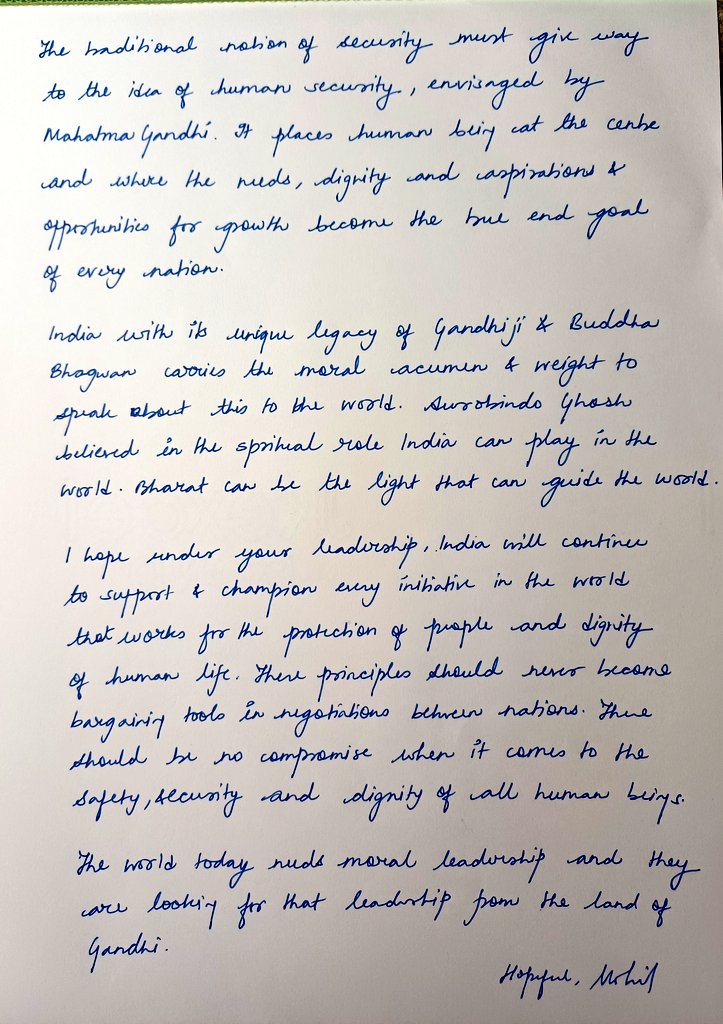 The traditional notion of security must give way
to the idea of human security, envisaged by
Mahatma Gandhi. It places human being at the centre
and where the needs, dignity and aspirations &
opportunities for growth become the true end goal
of every nation.
India with its unique legacy of Gandhiji & Buddha
Bhagwan carries the moral acumen & weight to
speak about this to the world. Aurobindo Ghosh
believed in the spritual role India can play in the
world. Bharat can be the light that can guide the world.
I hope under your leadership, India will continue
to support & champion every initiative in the world
that works for the protection of people and dignity
of human life. These principles should never become
bargaining tools in negotiations between nations. There
should be no compromise when it comes to the
safety, security and dignity of all human beings.
The world today needs moral leadership and they
are looking for that leadership from the land of
Gandhi.
Hopeful, Mohit